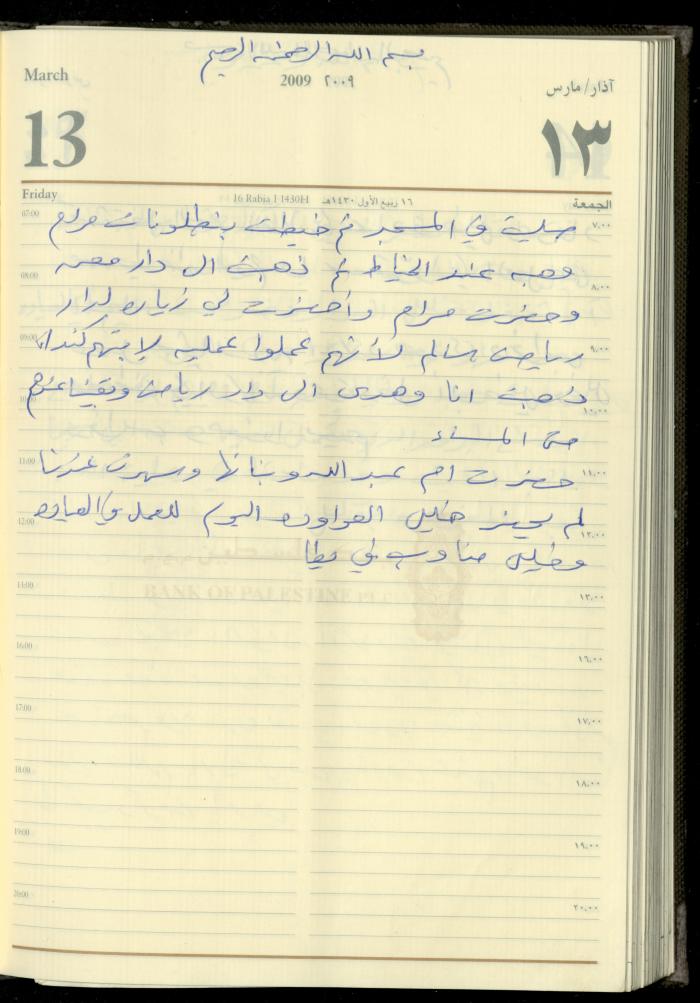 بسم الله الرحمن الرحيم
March 2009 ٢٠٠٩ آذار/مارس
13 ١٣
Friday 16 Rabia I 1430H ١٦ ربيع الأول ١٤٣٠هـ الجمعة
07:00 صليت في المسجد ثم خيطت بنطلونات مرام ٧,٠٠
وهبه عند الخياط ثم ذهبت ال دار معن
08:00 ٨,٠٠
وحضرت مرام وأحضرت لي زياره لدار
09:00 رياض سالم لأنهم عملوا عمليه لإبنتهم ٩,٠٠
ذهبت انا وهدى ال دار رياض وبقينا عندهم
10:00 ١٠,٠٠
حتى المساء
11:00 حضرت ام عبد الله وبناتها وسهرت عندنا ١١,٠٠
لم يحضر خليل العواوده اليوم للعمل في العياده
12:00 ١٢,٠٠
وخليل مناوب في يطا
BANK OF PALESTINE
13:00 ١٣,٠٠
16:00 ١٦,٠٠
17:00 ١٧,٠٠
18:00 ١٨,٠٠
19:00 ١٩,٠٠
20:00 ٢٠,٠٠